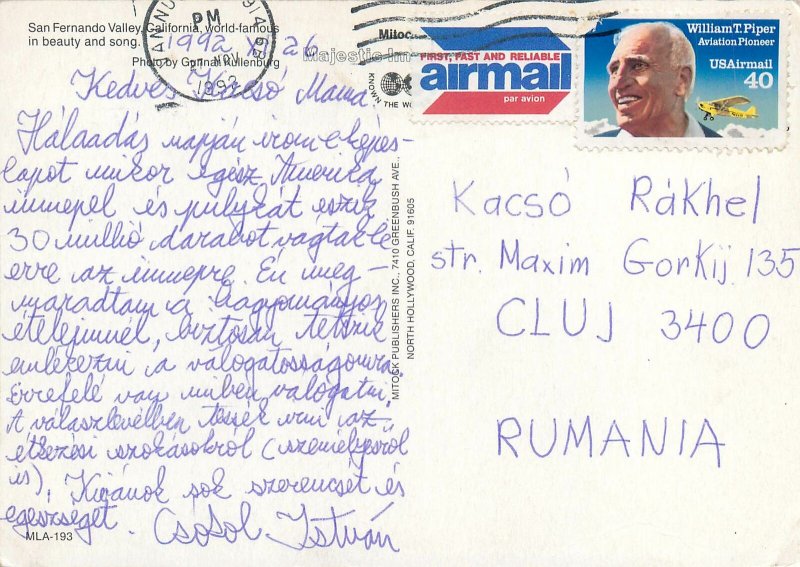 San Fernando Valley, California, world-famous
in beauty and song.
Photo by Gunnar Kullenburg
1992 XI 26
PM
NOV
1992
Kedves Kacsó Mama
Hálaadás napján irom e képes-
lapot mikor egész Amerika
ünnepel és pulykát eszik
30 millió darabot vágtak le
erre az ünnepre. Én meg-
maradtam a hagyományos
ételeimnél, biztosan tetszik
emlékezni a válogatósságomra.
Errefelé van miben válogatni.
A válaszlevélben tessék irni az
étkezési szokásokról (személyesről
is). Kivánok sok szerencsét és
egészséget. Csosol István
MLA-193
MITOCK PUBLISHERS INC., 7410 GREENBUSH AVE.,
NORTH HOLLYWOOD, CALIF. 91605
FIRST, FAST AND RELIABLE
airmail
par avion
William T. Piper
Aviation Pioneer
USAirmail
40
Kacsó Rákhel
str. Maxim Gorkij 135
CLUJ 3400
RUMANIA